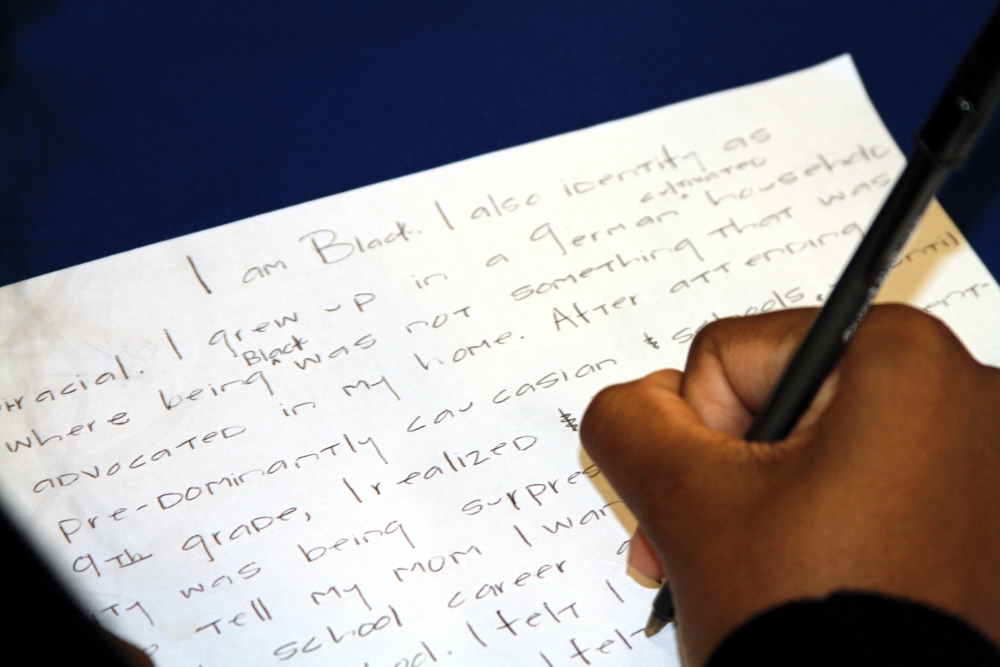 I am Black. I also identity as
cultivated
racial. I grew up in a german household
Black
where being was not something that was
advocated in my home. After attending
pre-dominantly caucasian schools, until
9th grade, I realized
ity was being surpres
tell my mom I wan
school career
I felt I
I felt